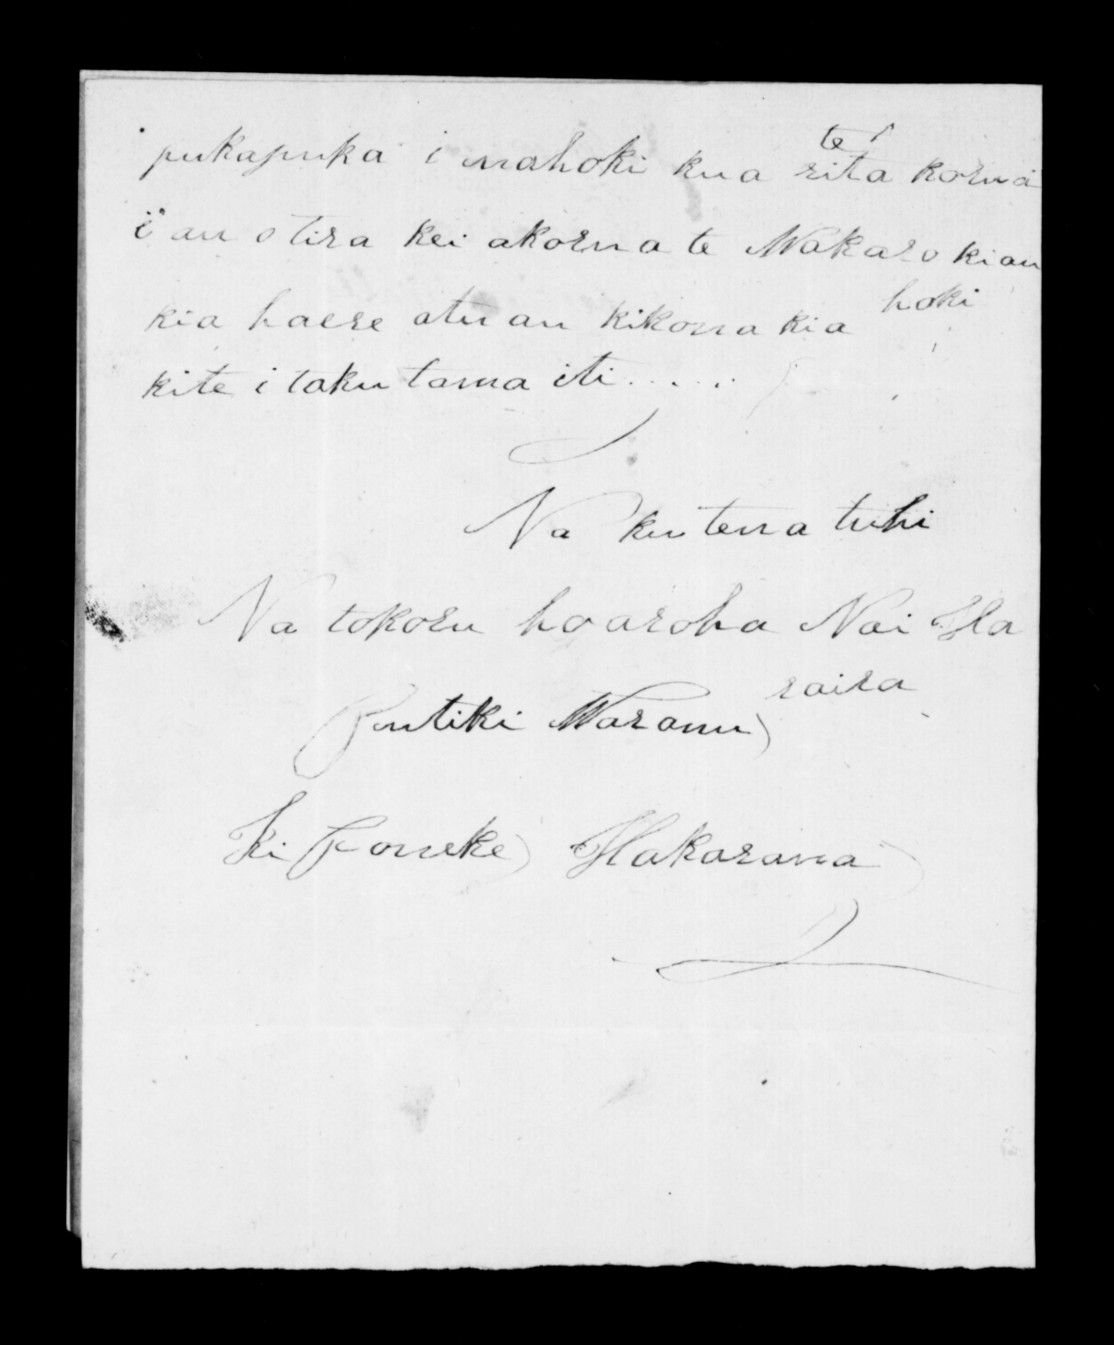 pukapuka i mahoki kua te rita korua
i au otira kei akorua te Wakaro kiau
kia haere atu au kikona kia hoki
kite i taku tama iti.....
Na ku tena tuhi
Na tokoru hoaroha Nai Ha
raira
Putiki Waranui)
Ki Poneke) Hakarana